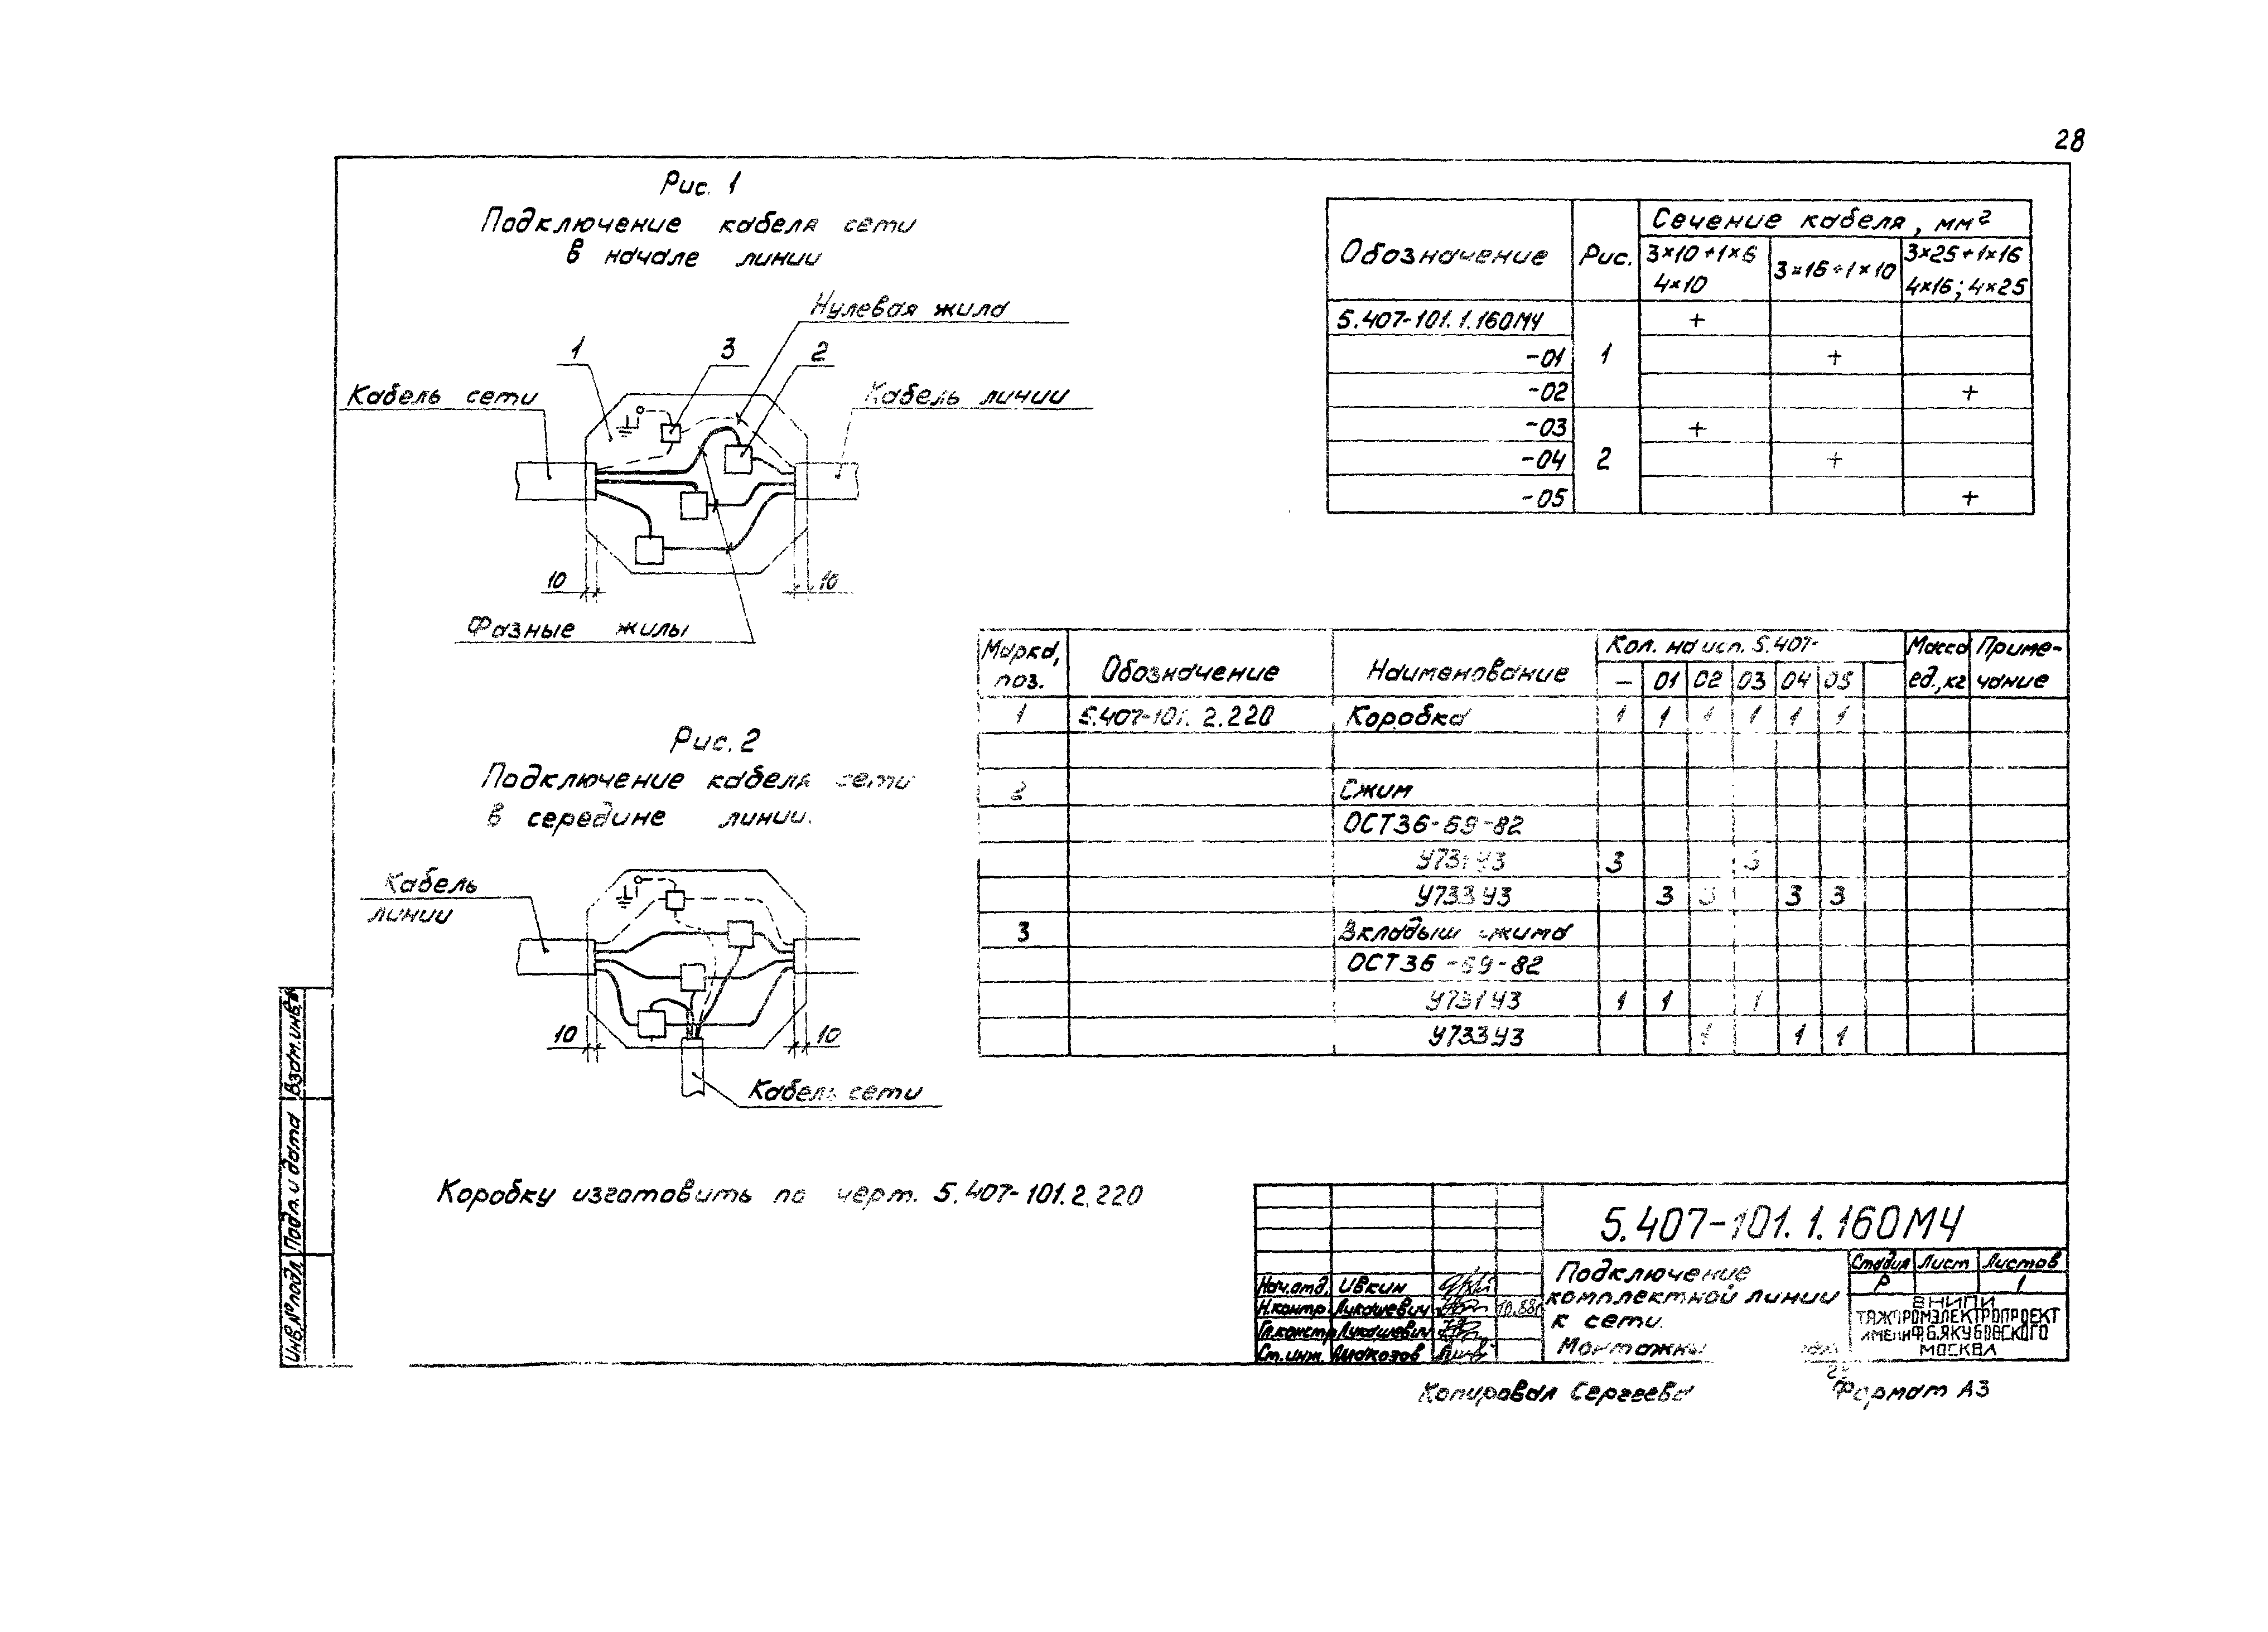 28
Рис. 1
Подключение кабеля сети
в начале линии
Нулевая жила
1
3
2
Кабель сети
Кабель линии
10
10
Фазные жилы
Рис. 2
Подключение кабеля сети
в середине линии.
Кабель
линии
10
10
Кабель сети
Коробку изготовить по черт. 5.407-101.2.220
Обозначение Рис. Сечение кабеля, мм²
3×10+1×6 4×10 3×16+1×10 3×25+1×16 4×16; 4×25
5.407-101.1.160МЧ 1 +
-01 +
-02 +
-03 2 +
-04 +
-05 +
Марка, поз. Обозначение Наименование Кол. на исп. 5.407- Масса ед., кг Примечание
– 01 02 03 04 05
1 5.407-101.2.220 Коробка 1 1 1 1 1 1
2 Сжим
ОСТ36-69-82
У731У3 3 3
У733У3 3 3 3 3
3 Вкладыш сжима
ОСТ36-69-82
У731У3 1 1 1
У733У3 1 1 1
5.407-101.1.160МЧ
Подключение
комплектной линии
к сети.
Стадия Лист Листов
Р 1
ВНИПИ
ТЯЖПРОМЭЛЕКТРОПРОЕКТ
ИМЕНИ Ф.Б.ЯКУБОВСКОГО
МОСКВА
Нач.отд. Ивкин
Н.контр. Лукашевич 10.88г
Гл.констр. Лукашевич
Ст.инж.
Копировал Сергеева
Формат А3
Взам.инв.№
Подп. и дата
Инв.№подл.